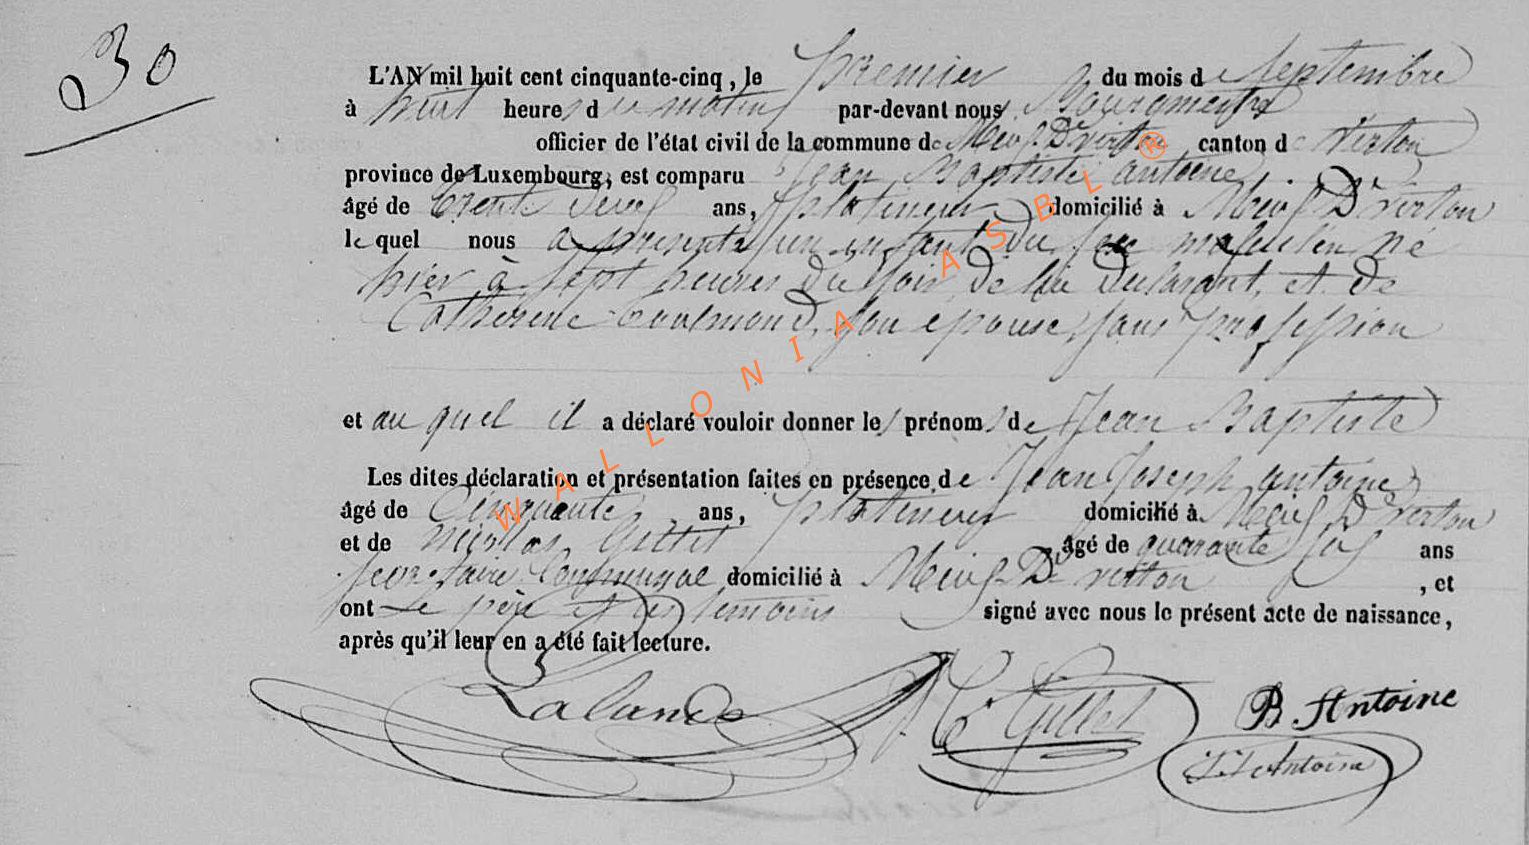 30
L'AN mil huit cent cinquante-cinq, le premier du mois de Septembre
à huit heures du matin par-devant nous Bourgmestre
officier de l'état civil de la commune de Meix Dt virton canton de virton
province de Luxembourg, est comparu Jean Baptiste antoine
âgé de trente deux ans, platineur domicilié à Meix Dt virton
le quel nous a présenté un enfant du sexe masculin né
hier à sept heures du soir, de lui déclarant, et de
Catherine Goulmond, son épouse, sans profession
et au quel il a déclaré vouloir donner les prénoms de Jean Baptiste
Les dites déclaration et présentation faites en présence de Jean Joseph antoine
âgé de Cinquante ans, platineur domicilié à Meix Dt virton
et de nicolas Gillet âgé de quarante six ans
secrétaire Communal domicilié à Meix Dt virton, et
ont Le père et les témoins signé avec nous le présent acte de naissance,
après qu'il leur en a été fait lecture.
Lalande N. Gillet B. Antoine
J J Antoine
WALLONIA ASBL ®